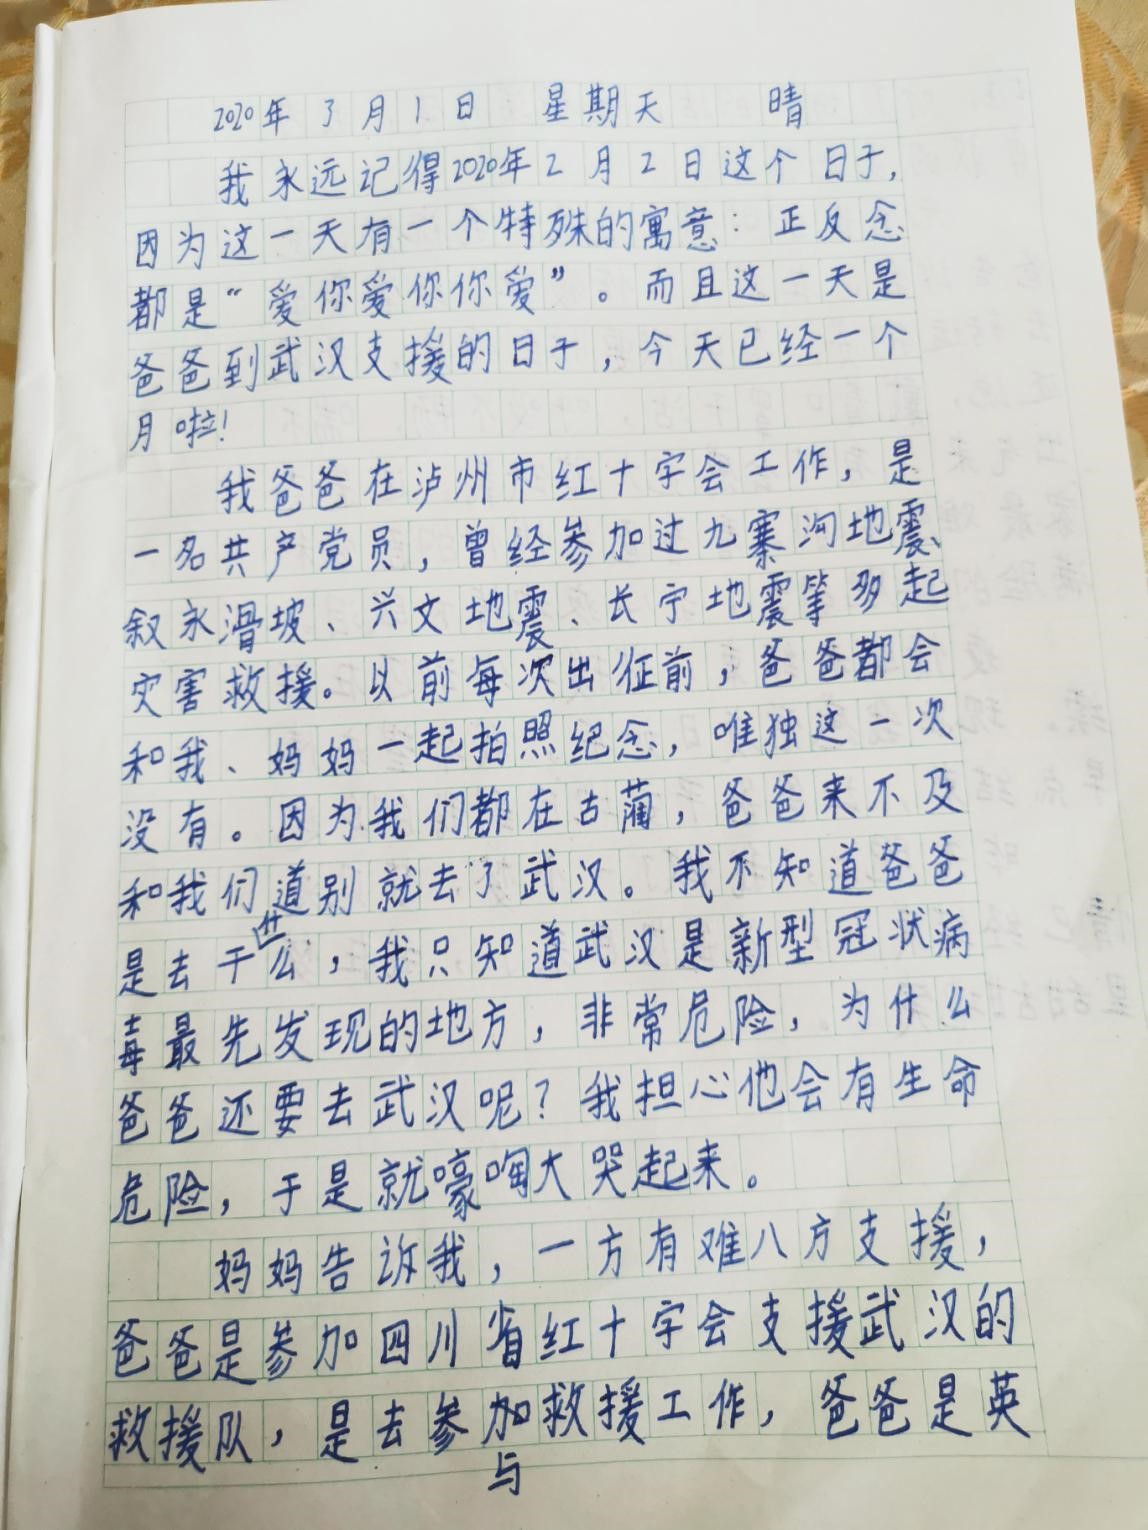 2020年3月1日 星期天 晴
我永远记得2020年2月2日这个日子,
因为这一天有一个特殊的寓意：正反念
都是“爱你爱你你爱”。而且这一天是
爸爸到武汉支援的日子，今天已经一个
月啦！
我爸爸在泸州市红十字会工作，是
一名共产党员，曾经参加过九寨沟地震、
叙永滑坡、兴文地震、长宁地震等多起
灾害救援。以前每次出征前，爸爸都会
和我、妈妈一起拍照纪念，唯独这一次
没有。因为我们都在古蔺，爸爸来不及
和我们道别就去了武汉。我不知道爸爸
是去干什么，我只知道武汉是新型冠状病
毒最先发现的地方，非常危险，为什么
爸爸还要去武汉呢？我担心他会有生命
危险，于是就嚎啕大哭起来。
妈妈告诉我，一方有难八方支援，
爸爸是参加四川省红十字会支援武汉的
救援队，是去参加救援工作，爸爸是英
与